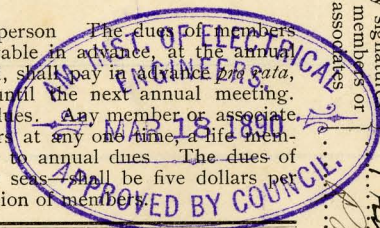 person The dues of members
able in advance, at the annual
, shall pay in advance pro rata,
until the next annual meeting.
dues. Any member or associate
rs at any one time, a life mem-
to annual dues The dues of
seas shall be five dollars per
ion of members.
AM. INST. OF ELECTRICAL
ENGINEERS.
MAR 18 1890
APPROVED BY COUNCIL.
members or
associates